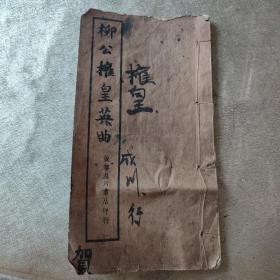 柳公權皇英曲
書店印行
權皇
成川行
賀